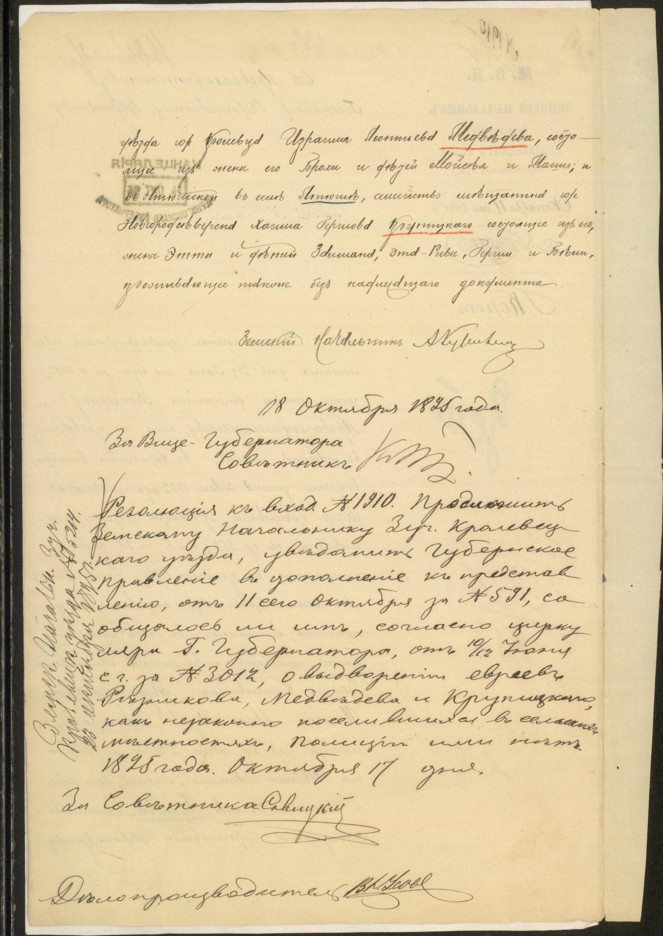 уѣзда гор Кролевца Израиля Леонтьева Медвѣдева, состо-
ящее изъ жены его Брохи и дѣтей Мойсея и Маши; и
въ Ямпольской въ селѣ Антоновкѣ, семейство мѣщанина гор
Новгородсѣверска Хаима Гершова Крупицкаго состоящее изъ его,
жены Этти и дѣтей Зельмана, Этя-Рива, Герши и Бейли,
проживающие также безъ надлежащаго документа
Земскій Начальникъ
18 Октября 1895 года.
За Вице-Губернатора
Совѣтникъ
Резолюція къ вход. № 1910. Предложить
Земскому Начальнику 3 уч. Кролевец-
каго уѣзда, увѣдомить Губернское
Правленіе въ дополненіе къ представ
ленію, отъ 11 сего Октября за № 591, со
общалось ли имъ, согласно цирку
ляра Г. Губернатора, отъ 10/12 Іюня
с. г. за № 3012, о выдвореніи евреевъ
Медвѣдева и Крупицкаго,
какъ незаконно поселившихся въ сельскихъ
мѣстностяхъ, полиціи или нѣтъ.
1895 года. Октября 17 дня.
За Совѣтника Савицкій
Дѣлопроизводитель
Земск. Началь. 3 уч.
Кролевец. уѣзда
23 октября 1895 г.
КАНЦЕЛЯРІЯ
№ 1910